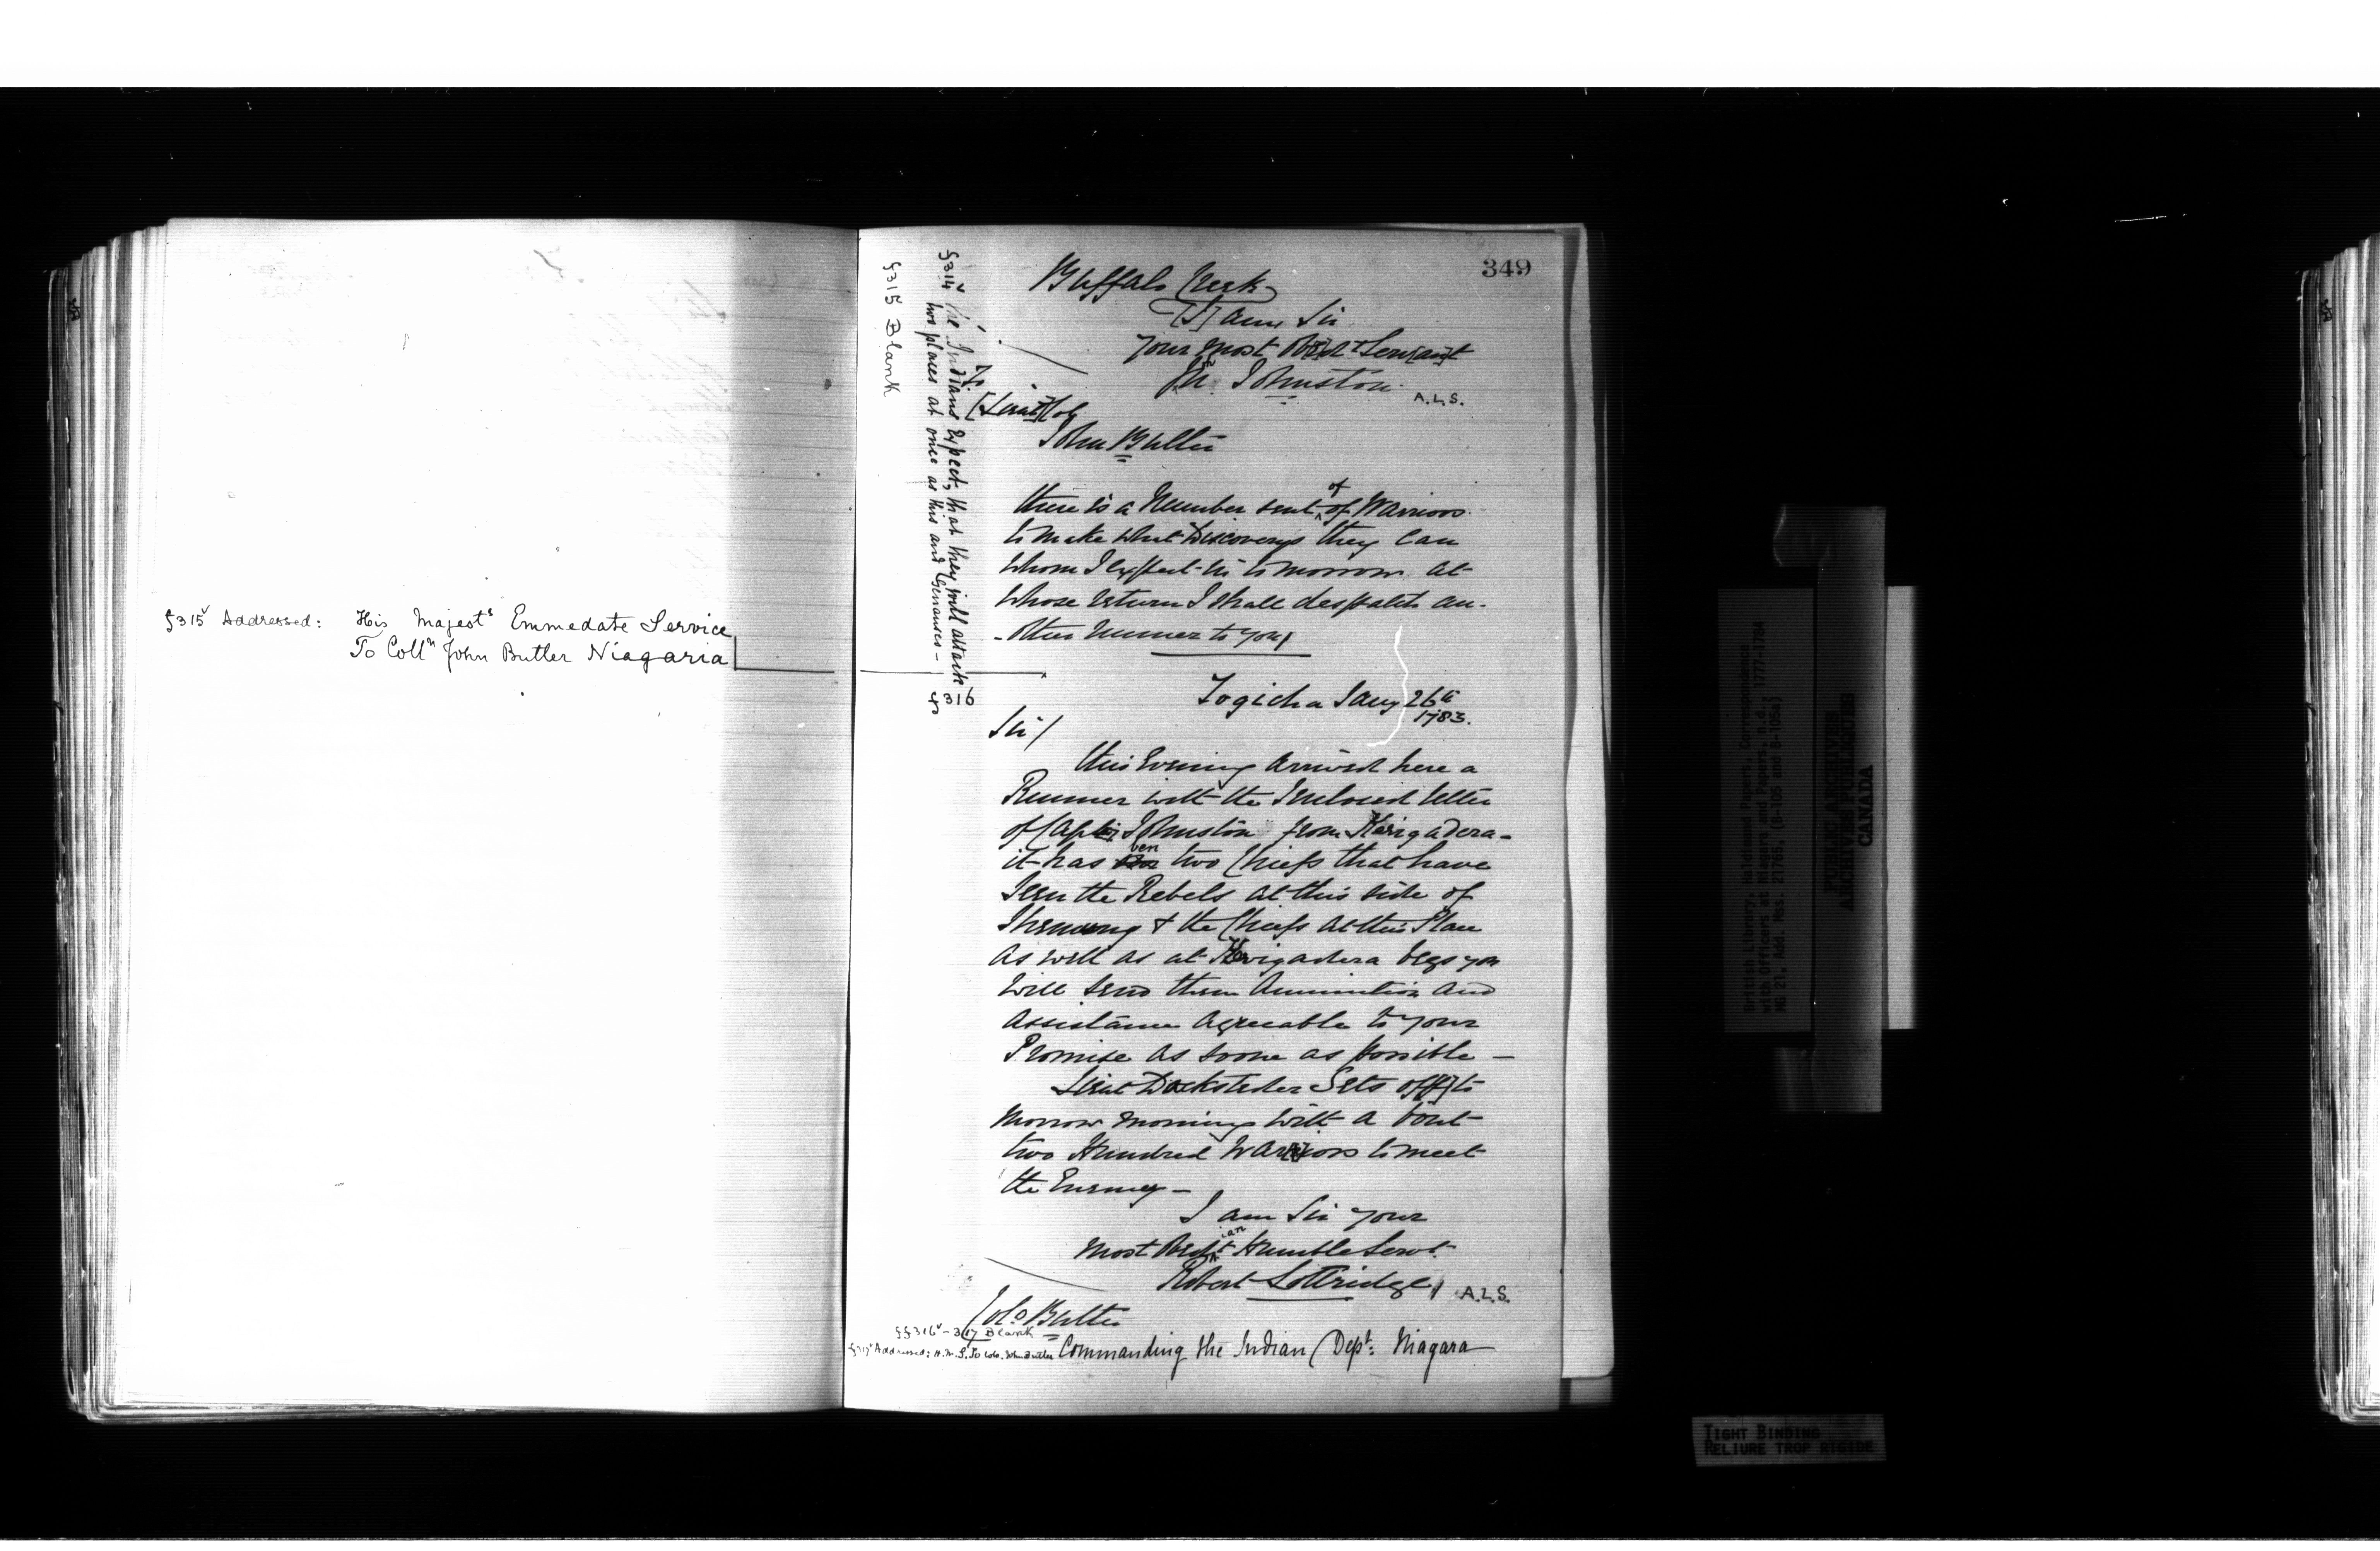 f315v Addressed: His Majests Emmedate Service
To Colln John Butler Niagaria
349
Buffalo Creek
[I] am Sir
your most Obed t Serv[an]t
Jn. Johnston
A.L.S.
[Lieut] Col
John Butler
f314v The Indians Expect, that they will attack
two places at once as this and Genausees —
f315 Blank
there is a Number sent of of Warriors
to make what Discoverys they Can
whom I expect in to morrow at
whose return I shall despatch an-
- other Runner to you/
f316
Togicha Jany 26th
1783.
Sir/
this Evening arrived here a
Runner with the Inclosed letter
of Capt Johnston from Karigadera -
it has ben two Chiefs that have
Seen the Rebels at this side of
Shemung & the Chiefs at this Place
as well as at Karigadera begs you
will send them Ammunition and
assistance agreeable to your
Promise as soone as possible —
Lieut Docksteder Sets off to
Morrow morning with a bout
two Hundred Warriors to meet
the Enemy —
I am Sir your
most Obedt Humble Servt
Robert Lottridge/ A.L.S.
Colo Butler
ff316v - 317 Blank
f317v Addressed: H.M.S. To Colo. John Butler Commanding the Indian Dept: Niagara
British Library, Haldimand Papers, Correspondence
with Officers at Niagara and Papers, n.d., 1777-1784
MG 21, Add. Mss. 21765, (B-105 and B-105a)
PUBLIC ARCHIVES
ARCHIVES PUBLIQUES
CANADA
TIGHT BINDING
RELIURE TROP RIGIDE